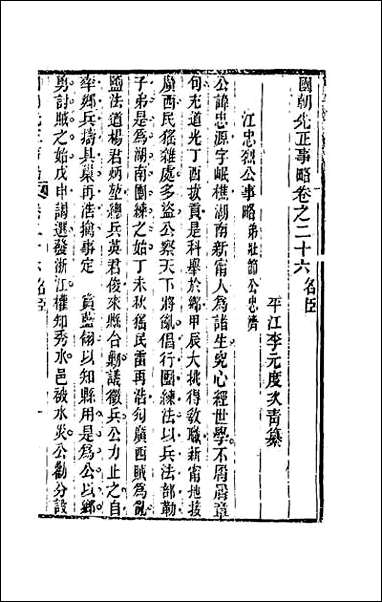 國朝先正事略卷之二十六 名臣
平江李元度次青纂
江忠烈公事略 弟壯節公忠濟
公諱忠源字岷樵湖南新甯人為諸生究心經世學不屑屑章
句充道光丁酉拔貢是科舉於鄉甲辰大挑得敎職新甯地接
廣西民猺雜處多盜公察天下將亂倡行團練法以兵法部勒
子弟是為湖南團練之始丁未秋猺民雷再浩勾廣西賊為亂
鹽法道楊君炳堃總兵英君俊來縣合勦議徵兵公力止之自
率鄉兵擣其巢再浩擒事定 賞藍翎以知縣用是為公以鄉
勇討賊之始戊申謁選發浙江權知秀水邑被水災公勸分設